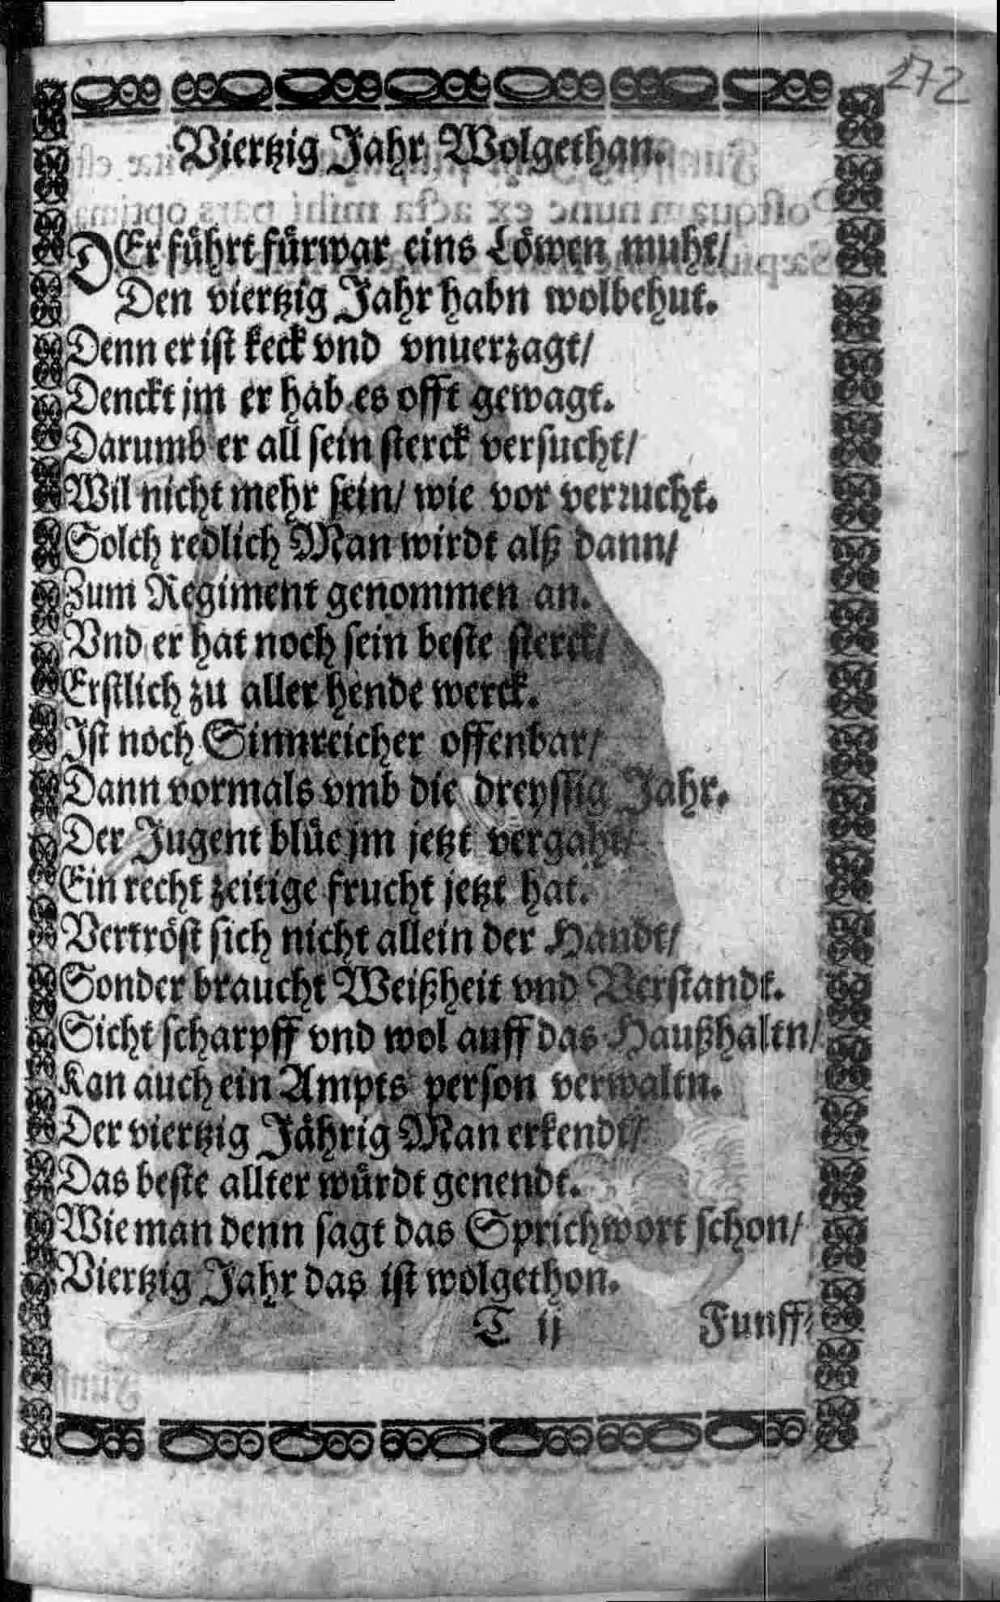 272
Viertzig Jahr Wolgethan.
DEr führt fürwar eins Löwen muht/
Den viertzig Jahr habn wolbehut.
Denn er ist keck vnd vnuerzagt/
Denckt jm er hab es offt gewagt.
Darumb er all sein sterck versucht/
Wil nicht mehr sein/ wie vor verrucht.
Solch redlich Man wirdt alß dann/
Zum Regiment genommen an.
Vnd er hat noch sein beste sterck/
Erstlich zu aller hende werck.
Ist noch Sinnreicher offenbar/
Dann vormals vmb die dreyssig Jahr.
Der Jugent blüe jm jetzt vergaht/
Ein recht zeitige frucht jetzt hat.
Vertröst sich nicht allein der Handt/
Sonder braucht Weißheit vnd Verstandt.
Sicht scharpff vnd wol auff das Haußhaltn/
Kan auch ein Ampts person verwaltn.
Der viertzig Jährig Man erkendt/
Das beste allter würdt genendt.
Wie man denn sagt das Sprichwort schon/
Viertzig Jahr das ist wolgethon.
T ij Funff-